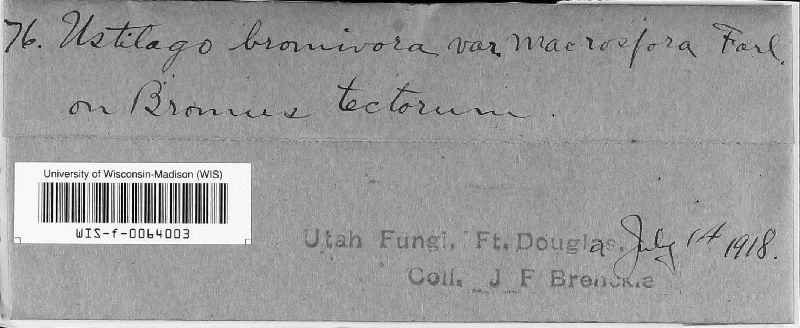 76. Ustilago bromivora var. macrospora Farl.
on Bromus tectorum.
University of Wisconsin-Madison (WIS)
WIS-f-0064003
Utah Fungi, Ft. Douglas, a July 14 1918.
Coll. J F Brenckle